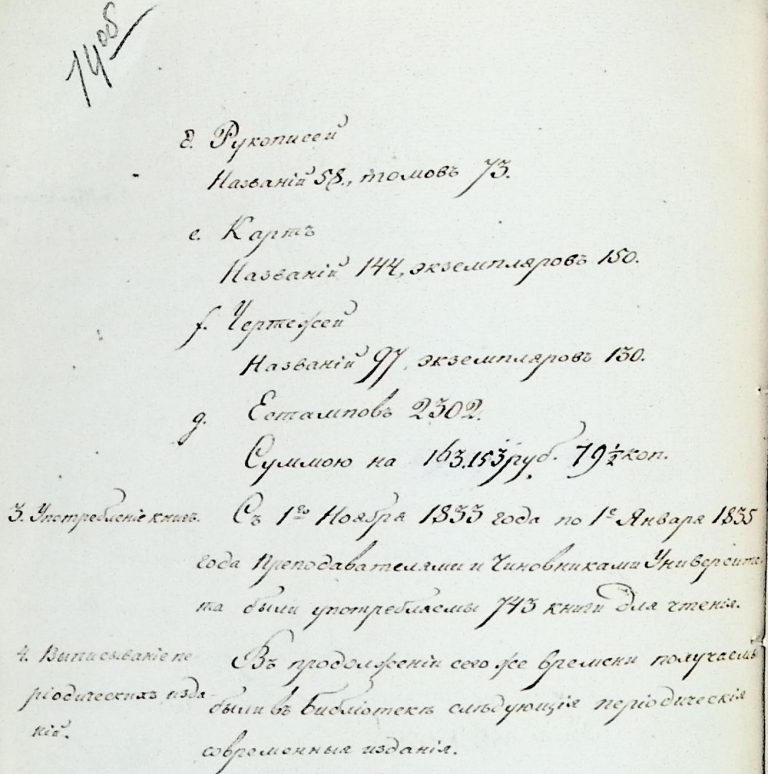 14 об
d. Рукописей
Названій 58, томовъ 73.
e. Картъ
Названій 144, экземпляровъ 150.
f. Чертежей
Названій 97, экземпляровъ 130.
g. Естамповъ 2302.
Суммою на 163.153 руб. 79 1/2 коп.
3. Употребленіе книгъ. Съ 1го Ноября 1833 года по 1е Января 1835
года преподавателями и Чиновниками Университе-
та были употребляемы 743 книги для чтенія.
4. Выписываніе пе- Въ продолженіи сего же времени получаемы
ріодическихъ изда- были въ Библіотекѣ слѣдующія періодическія
ній. современныя изданія.